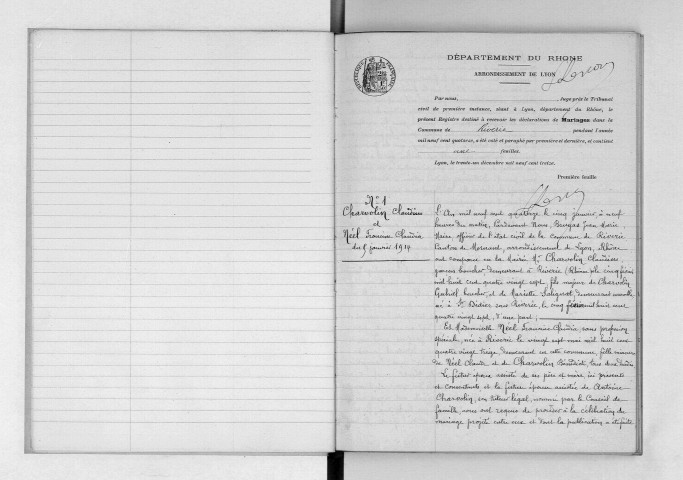 RÉPUBLIQUE FRANÇAISE
DÉPARTEMENT DU RHONE
ARRONDISSEMENT DE LYON
Par nous, , Juge près le Tribunal
civil de première instance, séant à Lyon, département du Rhône, le
présent Registre destiné à recevoir les déclarations de Mariages dans la
Commune de Riverie pendant l'année
mil neuf cent quatorze, a été coté et paraphé par première et dernière, et contient
feuilles.
Lyon, le trente-un décembre mil neuf cent treize.
Première feuille
No 1
Charvolin Claudius
et
Néel Francine Claudia
du 5 janvier 1914
L'An mil neuf cent quatorze le cinq janvier, à neuf
heures du matin, Pardevant Nous Jean Marie,
Maire officier de l'état civil de la Commune de Riverie
Canton de Mornant, arrondissement de Lyon, Rhône
ont comparu en la Mairie Mr Charvolin Claudius,
garçon boucher demeurant à Riverie (Rhône)
mil huit cent quatre vingt sept, fils majeur de Charvolin
boucher, et de Mariette demeurant
né à St Didier sous Riverie, le cinq mil huit cent
quatre vingt sept, d'une part;
Et Mademoiselle Néel Francine Claudia, sans profession
spéciale, née à Riverie le vingt sept mai mil huit cent
quatre vingt treize, demeurant en cette commune, fille mineure
de Néel Claude et de Charvolin Benoîte, tous deux décédés
Le futur époux assisté de ses père et mère, ici présents
et consentants et la future épouse assistée de Antoine
Charvolin, son tuteur légal, nommé par le Conseil de
famille, nous ont requis de procéder à la célébration du
mariage projeté entre eux et dont la publication a été faite